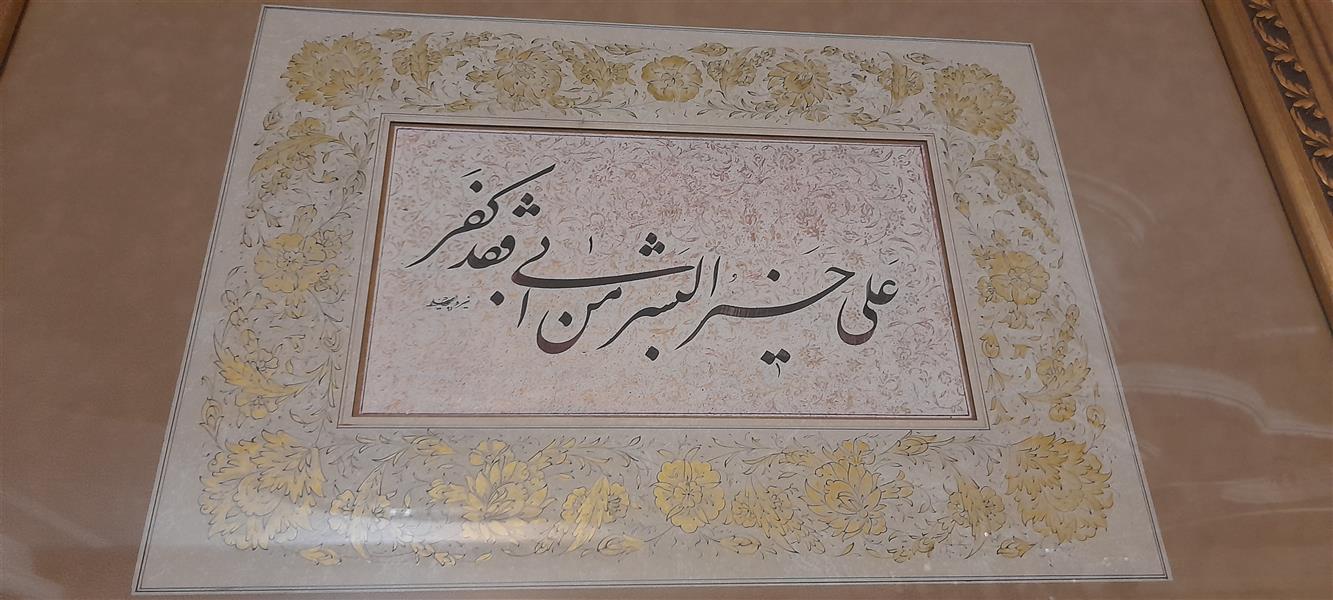 عَلی خَیرُ البَشَر مَن اَبی فقَد کفَر